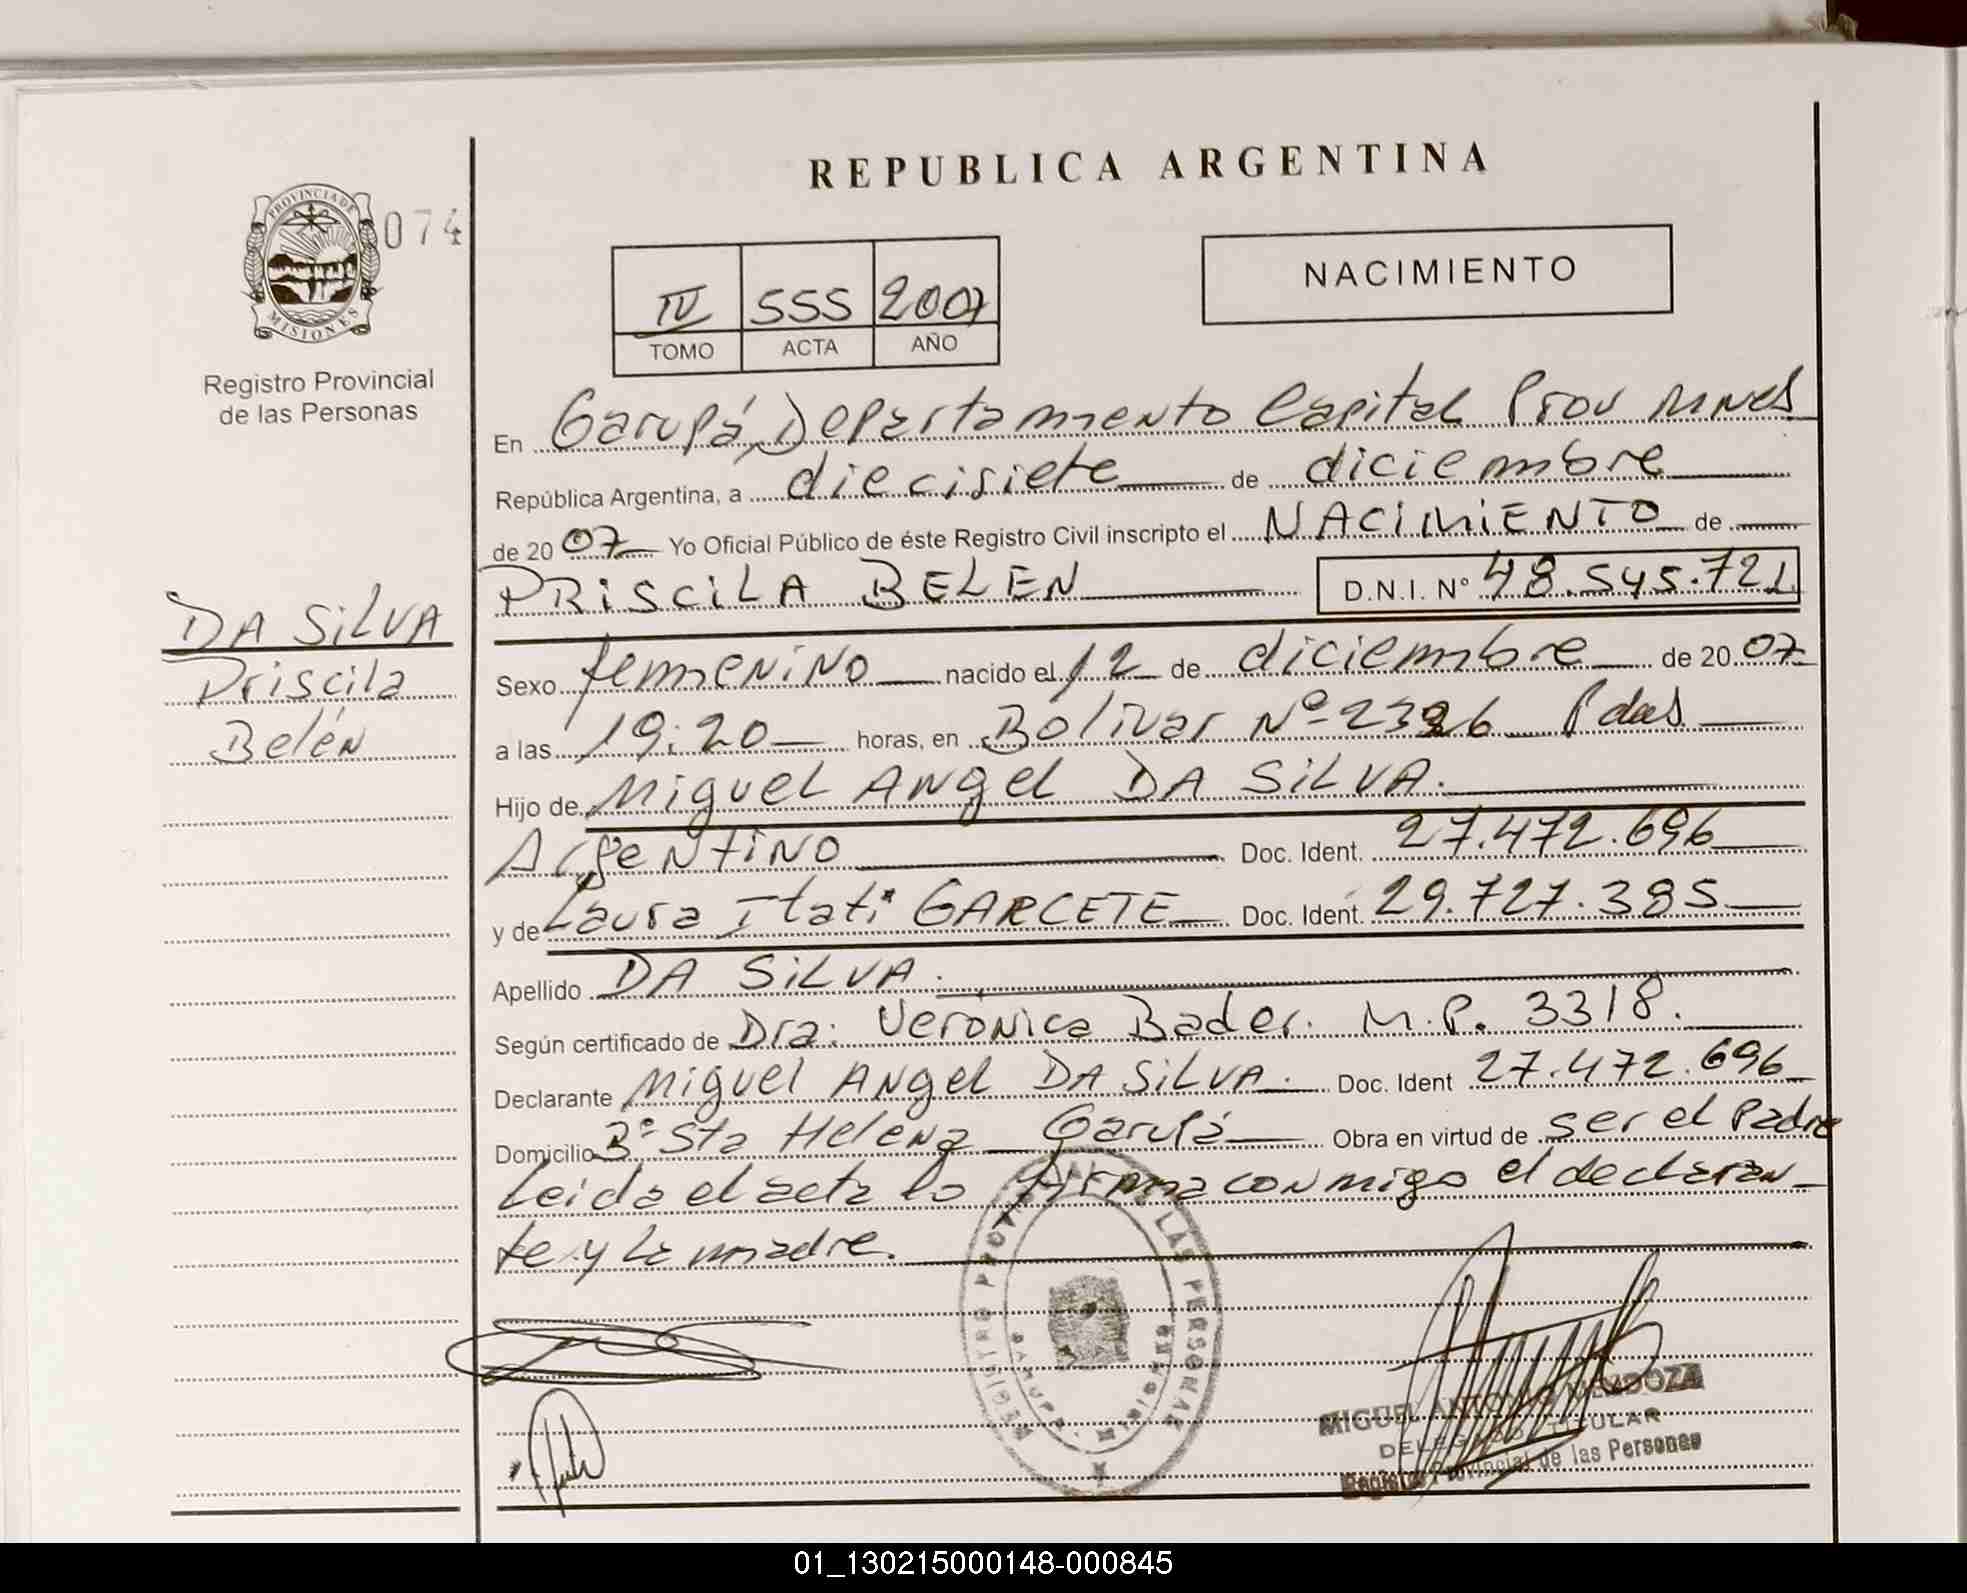 REPUBLICA ARGENTINA
PROVINCIA DE
MISIONES
074
Registro Provincial
de las Personas
IV 555 2007
TOMO ACTA AÑO
NACIMIENTO
En Garupá, Departamento Capital Prov Mnes
República Argentina, a diecisiete de diciembre
de 2007 Yo Oficial Público de éste Registro Civil inscripto el NACIMIENTO de
PRISCILA BELEN D.N.I. Nº 48.545.721
DA SILVA
Priscila
Belén
Sexo femenino nacido el 12 de diciembre de 2007
a las 19:20 horas, en Bolivar Nº 2326 Pdas
Hijo de Miguel Angel DA SILVA.
Argentino Doc. Ident. 27.472.696
y de Laura Itati GARCETE Doc. Ident. 29.727.385
Apellido DA SILVA.
Según certificado de Dra: Veronica Bader. M.P. 3318.
Declarante Miguel Angel DA SILVA. Doc. Ident 27.472.696
Domicilio Bº Sta Helena Garupá Obra en virtud de ser el Padre
Leida el acta la firma conmigo el declaran-
te y la madre.
MIGUEL ANTONIO MENDOZA
DELEGADO TITULAR
Registro Provincial de las Personas
01_130215000148-000845